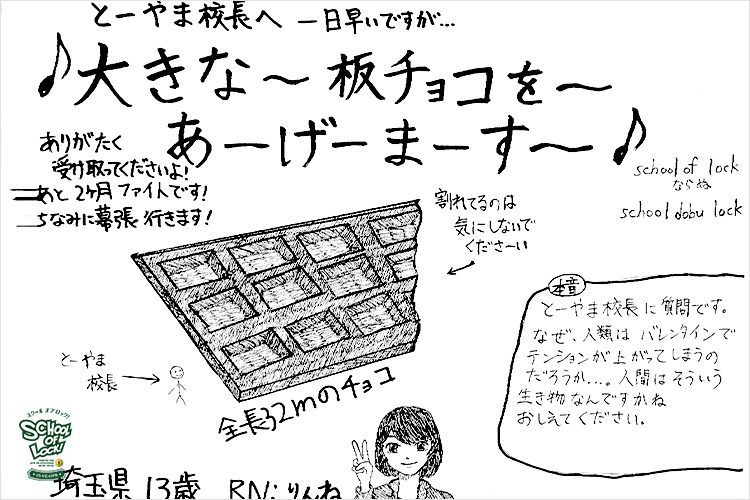 とーやま校長へ 一日早いですが…
♪大きな〜板チョコを〜
あーげーまーす〜♪
ありがたく
受け取ってくださいよ!
あと2ヶ月ファイトです!
ちなみに幕張行きます!
school of lock
ならぬ
school dobu lock
割れてるのは
気にしないで
くださーい
とーやま
校長
全長32mのチョコ
本音
とーやま校長に質問です。
なぜ、人類はバレンタインで
テンションが上がってしまうの
だろうか…。人間はそういう
生き物なんですかね
おしえてください。
スクールオブロック!
SCHOOL
OF
LOCK!
埼玉県 13歳 RN:りんね